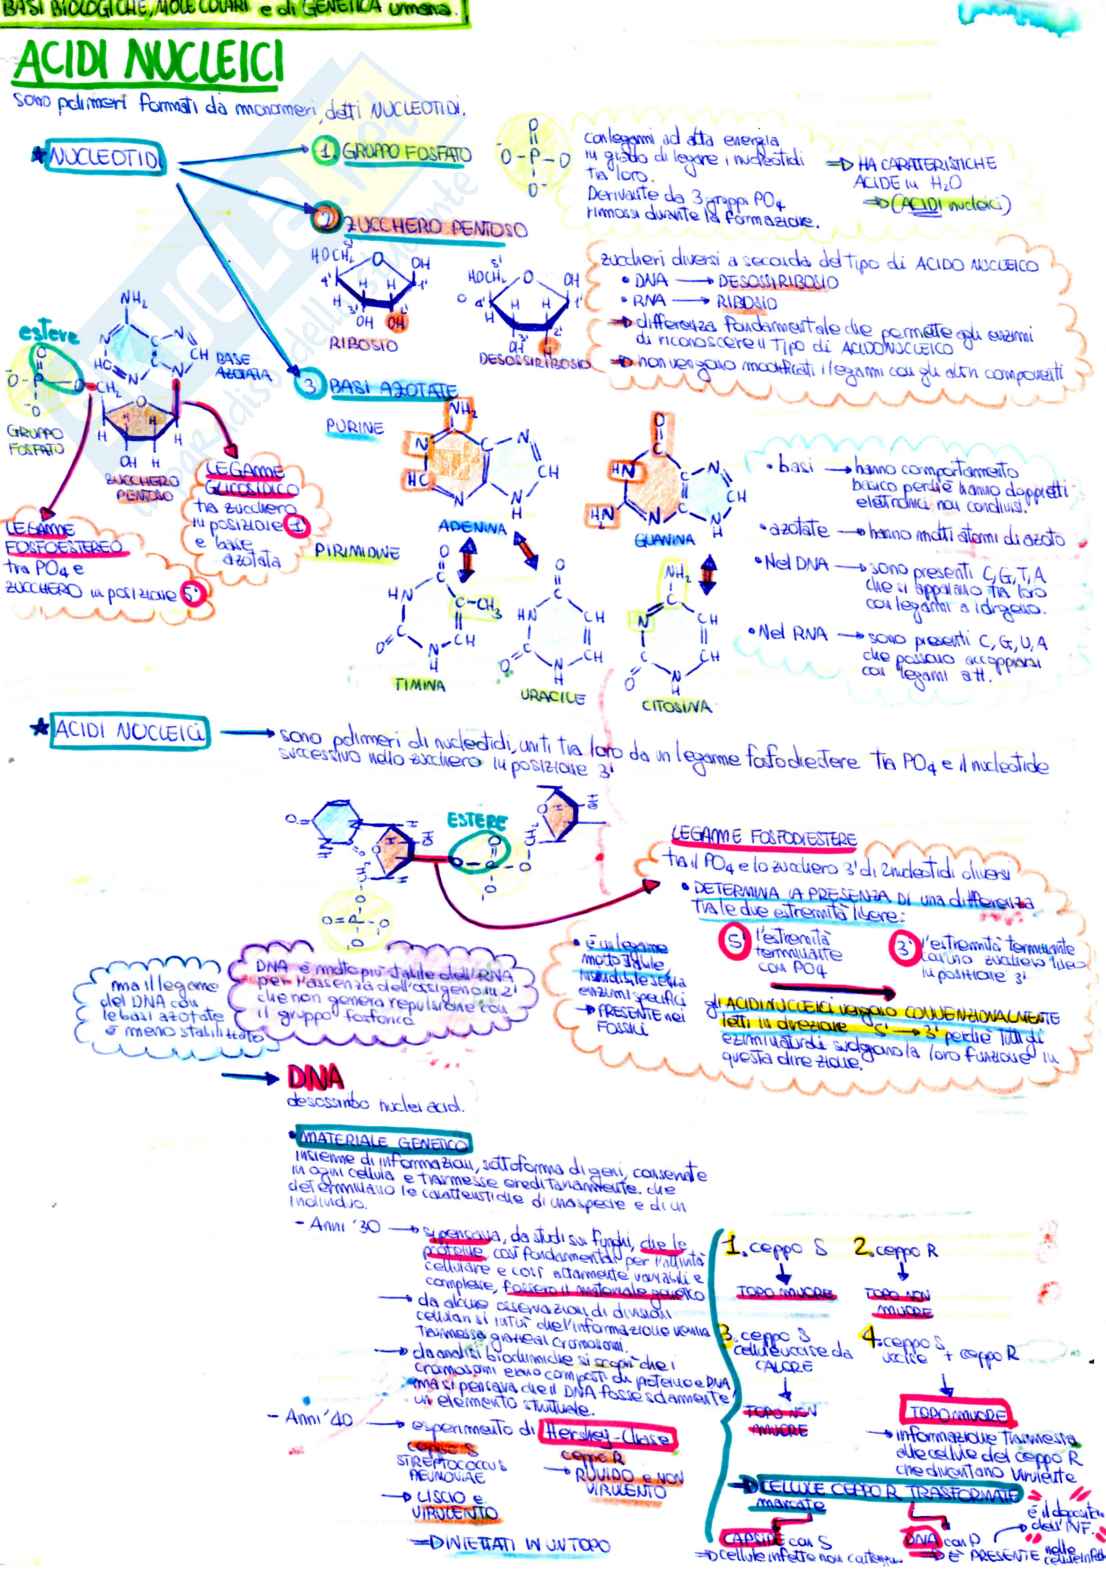 BASI BIOLOGICHE, MOLECOLARI e di GENETICA umana.
ACIDI NUCLEICI
sono polimeri formati da monomeri, detti NUCLEOTIDI.
★ NUCLEOTIDI
1. GRUPPO FOSFATO
con legami ad alta energia
in grado di legare i nucleotidi
tra loro.
Derivante da 3 gruppi PO4
rimossi durante la formazione.
⇒ HA CARATTERISTICHE
ACIDE in H2O
⇒ (ACIDI nucleici)
2. ZUCCHERO PENTOSO
RIBOSIO
DESOSSIRIBOSIO
zuccheri diversi a seconda del tipo di ACIDO NUCLEICO
• DNA → DESOSSIRIBOSIO
• RNA → RIBOSIO
⇒ differenza fondamentale che permette agli enzimi
di riconoscere il TIPO di ACIDO NUCLEICO
⇒ non vengono modificati i legami con gli altri componenti
3 BASI AZOTATE
PURINE
ADENINA
GUANINA
estere
BASE
AZOTATA
GRUPPO
FOSFATO
ZUCCHERO
PENTOSO
LEGAME
GLICOSIDICO
tra zucchero
in posizione 1'
e base
azotata
LEGAME
FOSFOESTEREO
tra PO4 e
ZUCCHERO in posizione 5'
PIRIMIDINE
TIMINA
URACILE
CITOSINA
• basi → hanno comportamento
basico perché hanno doppietti
elettronici non condivisi.
• azotate → hanno molti atomi di azoto
• Nel DNA → sono presenti C, G, T, A
che si appaiano tra loro
con legami a idrogeno.
• Nel RNA → sono presenti C, G, U, A
che possono accoppiarsi
con legami a H.
★ ACIDI NUCLEICI → sono polimeri di nucleotidi, uniti tra loro da un legame fosfodiestere tra PO4 e il nucleotide
successivo nello zucchero in posizione 3'
ESTERE
LEGAME FOSFODIESTERE
tra il PO4 e lo zucchero 3' di 2 nucleotidi diversi
• DETERMINA LA PRESENZA DI una differenza
tra le due estremità libere:
5' l'estremità
terminante
con PO4
3' l'estremità terminante
con uno zucchero libero
in posizione 3'
• è un legame
molto stabile
senza
enzimi specifici
→ PRESENTE nei
FOSSILI
gli ACIDI NUCLEICI vengono CONVENZIONALMENTE
letti in direzione 5' → 3' perché tutti gli
enzimi naturali svolgono la loro funzione in
questa direzione.
DNA è molto più stabile dell'RNA
per l'assenza dell'ossigeno in 2'
che non genera repulsione con
il gruppo fosforico
ma il legame
del DNA con
le basi azotate
è meno stabilizzato
→ DNA
desossiribo nucleic acid.
• MATERIALE GENETICO
insieme di informazioni, sottoforma di geni, conservate
in ogni cellula e trasmesse ereditariamente. che
determinano le caratteristiche di una specie e di un
individuo.
- Anni '30 → si pensava, da studi sui funghi, che le
proteine così fondamentali per l'attività
cellulare e così altamente variabili e
complesse, fossero il materiale genetico
→ da alcune osservazioni di divisioni
cellulari si intuì che l'informazione veniva
trasmessa grazie ai cromosomi.
→ da analisi biochimiche si scoprì che i
cromosomi erano composti da proteine e DNA
ma si pensava che il DNA fosse solamente
un elemento strutturale.
- Anni '40 → esperimento di Hershey-Chase
ceppo S
STREPTOCOCCUS
PNEUMONIAE
→ LISCIO e
VIRULENTO
ceppo R
→ RUVIDO e NON
VIRULENTO
⇒ INIETTATI IN UN TOPO
1. ceppo S
TOPO MUORE
2. ceppo R
TOPO NON
MUORE
3. ceppo S
cellule uccise da
CALORE
TOPO NON
MUORE
4. ceppo S
uccise + ceppo R
TOPO MUORE
→ informazione trasmessa
alle cellule del ceppo R
che diventano virulente
⇒ CELLULE CEPPO R TRASFORMATE
marcate
CAPSIDE con S
⇒ cellule infette non
DNA con P
⇒ È PRESENTE nelle
cellule infette
è il deposito
dell'INF.